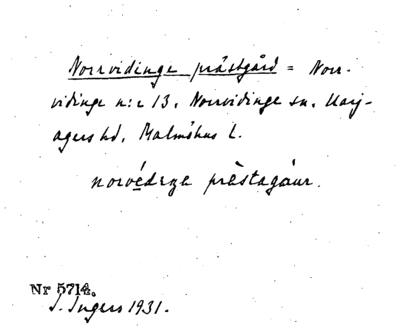 Norrvidinge prästgård = Norr-
vidinge n:r 13, Norrvidinge sn. Harj-
agers hd, Malmöhus l.
norvédeŋe prästagåur.
Nr 5714.
I. Ingers 1931.